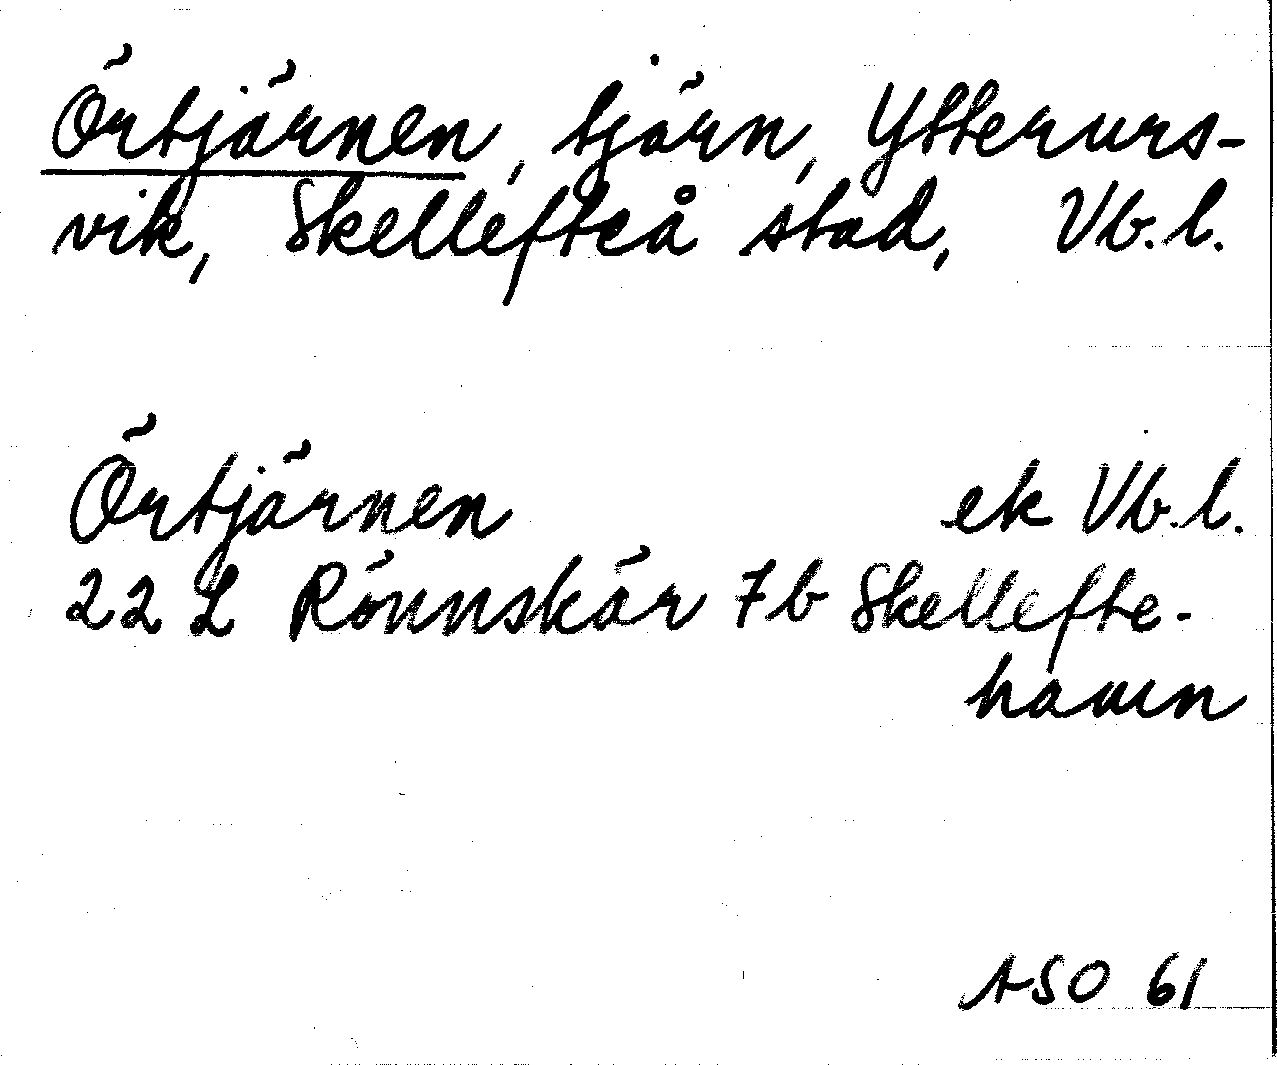 Örtjärnen, tjärn, Ytterurs-
vik, Skellefteå stad, Vb.l.
Örtjärnen ek Vb.l.
22 L Rönnskär 7b Skellefte-
hamn
ASO 61